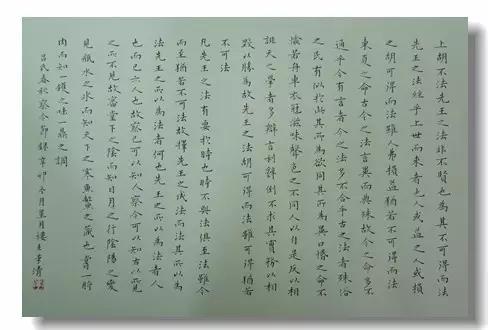 上胡不法先王之法非不賢也為其不可得而法
先王之法經乎上世而來者也人或益之人或損
之胡可得而法雖人弗損益猶若不可得而法
東夏之命古今之法言異而典殊故今之命多不
通乎今有言者今之法多不合乎古之法者殊俗
之民有似於此其所為欲同其所為異口惛之命不
愉若舟車衣冠滋味聲色之不同人以自是反以相
誹天之學者多辯言利辭倒不求其實務以相
毀以勝為故先王之法胡可得而法雖可得猶若
不可法
凡先王之法有要於時也時不與法俱至法雖今
而至猶若不可法故擇先王之成法而法其所以為
法先王之所以為法者何也先王之所以為法者人
也而己亦人也故察己可以知人察今可以知古以見
之而不見故審堂下之陰而知日月之行陰陽之變
見瓶水之冰而知天下之寒魚鱉之藏也嘗一脟
肉而知一鑊之味一鼎之調
呂氏春秋察今節錄辛卯冬月月樓主李清